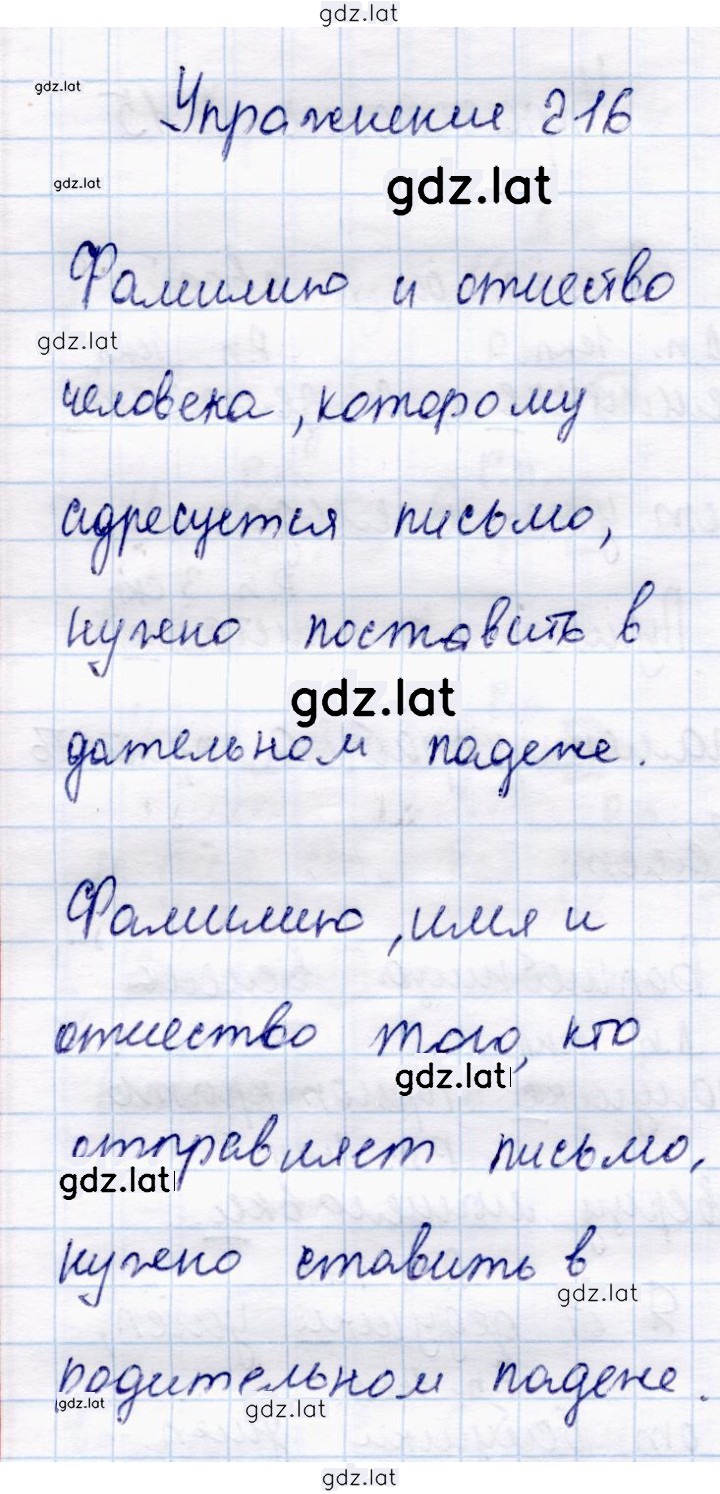 gdz.lat
gdz.lat
Упражнение 216
gdz.lat
gdz.lat
Фамилию и отчество
gdz.lat
человека, которому
адресуется письмо,
нужно поставить в
gdz.lat
дательном падеже.
Фамилию, имя и
отчество того, кто
gdz.lat
отправляет письмо,
gdz.lat
нужно ставить в
gdz.lat
родительном падеже.
gdz.lat
gdz.lat
gdz.lat